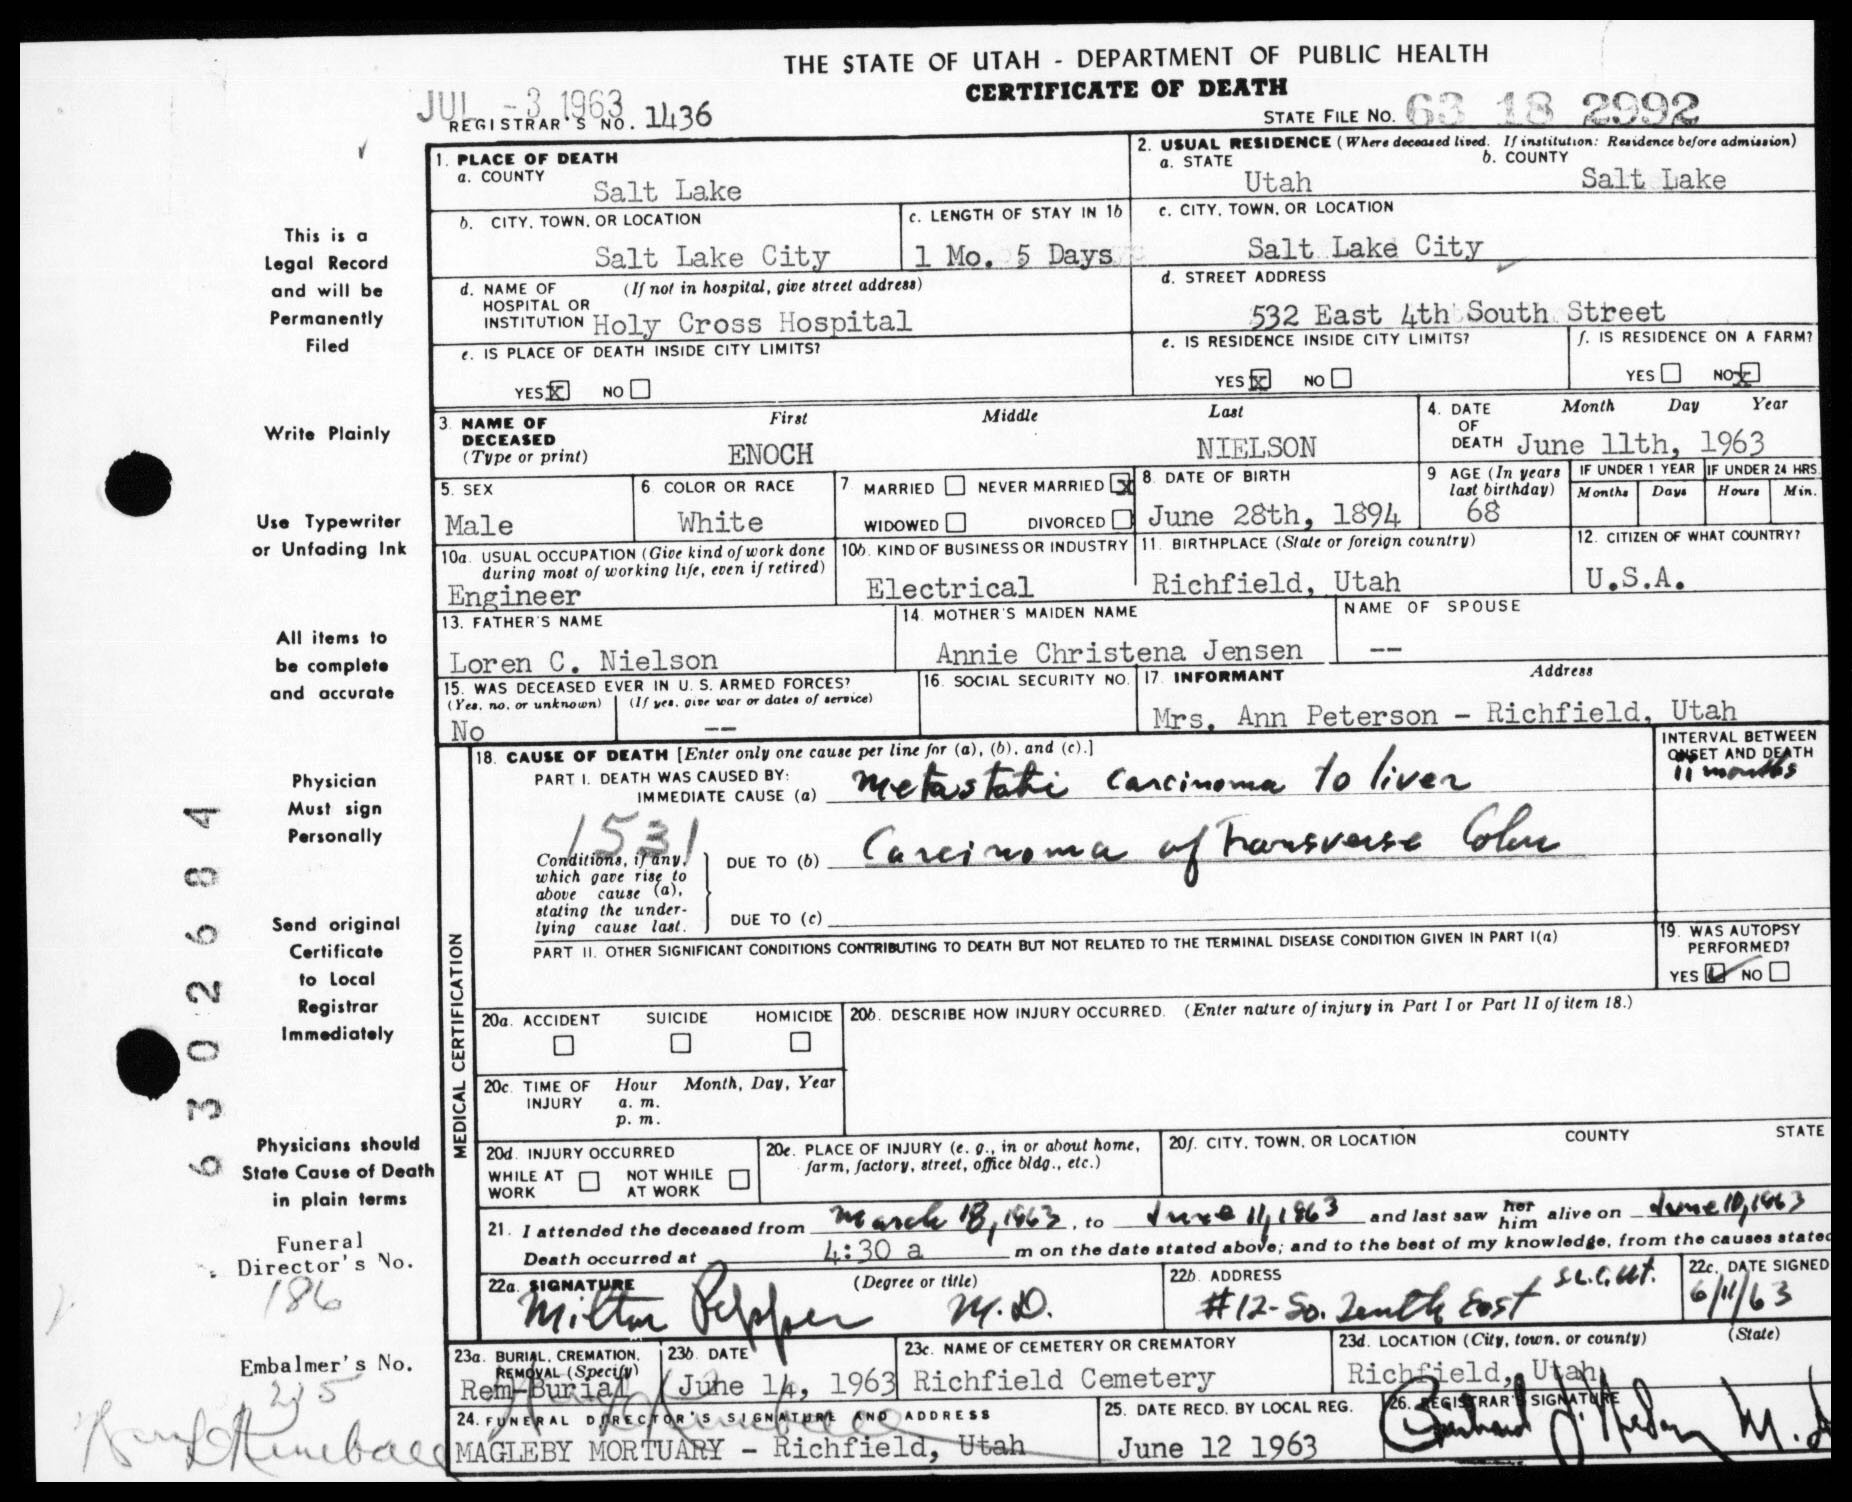 THE STATE OF UTAH - DEPARTMENT OF PUBLIC HEALTH
CERTIFICATE OF DEATH
JUL -3 1963
REGISTRAR'S NO. 1436
STATE FILE NO. 63 18 2992
1. PLACE OF DEATH
a. COUNTY
Salt Lake
2. USUAL RESIDENCE (Where deceased lived. If institution: Residence before admission)
a. STATE b. COUNTY
Utah Salt Lake
b. CITY, TOWN, OR LOCATION
Salt Lake City
c. LENGTH OF STAY IN 1b
1 Mo. 5 Days
c. CITY, TOWN, OR LOCATION
Salt Lake City
d. NAME OF (If not in hospital, give street address)
HOSPITAL OR
INSTITUTION Holy Cross Hospital
d. STREET ADDRESS
532 East 4th South Street
e. IS PLACE OF DEATH INSIDE CITY LIMITS?
YES X NO
e. IS RESIDENCE INSIDE CITY LIMITS?
YES X NO
f. IS RESIDENCE ON A FARM?
YES NO X
3. NAME OF DECEASED (Type or print)
First Middle Last
ENOCH NIELSON
4. DATE OF DEATH
Month Day Year
June 11th, 1963
5. SEX
Male
6. COLOR OR RACE
White
7. MARRIED NEVER MARRIED X
WIDOWED DIVORCED
8. DATE OF BIRTH
June 28th, 1894
9 AGE (In years last birthday)
68
IF UNDER 1 YEAR
Months Days
IF UNDER 24 HRS.
Hours Min.
10a. USUAL OCCUPATION (Give kind of work done
during most of working life, even if retired)
Engineer
10b. KIND OF BUSINESS OR INDUSTRY
Electrical
11. BIRTHPLACE (State or foreign country)
Richfield, Utah
12. CITIZEN OF WHAT COUNTRY?
U.S.A.
13. FATHER'S NAME
Loren C. Nielson
14. MOTHER'S MAIDEN NAME
Annie Christena Jensen
NAME OF SPOUSE
--
15. WAS DECEASED EVER IN U.S. ARMED FORCES?
(Yes, no, or unknown) (If yes, give war or dates of service)
No --
16. SOCIAL SECURITY NO.
17. INFORMANT Address
Mrs. Ann Peterson - Richfield, Utah
18. CAUSE OF DEATH [Enter only one cause per line for (a), (b), and (c).]
PART I. DEATH WAS CAUSED BY:
IMMEDIATE CAUSE (a) Metastatic carcinoma to liver
INTERVAL BETWEEN
ONSET AND DEATH
11 months
1531
Conditions, if any,
which gave rise to
above cause (a),
stating the under-
lying cause last.
DUE TO (b) Carcinoma of Transverse Colon
DUE TO (c)
PART II. OTHER SIGNIFICANT CONDITIONS CONTRIBUTING TO DEATH BUT NOT RELATED TO THE TERMINAL DISEASE CONDITION GIVEN IN PART I(a)
19. WAS AUTOPSY
PERFORMED?
YES ✓ NO
MEDICAL CERTIFICATION
20a. ACCIDENT SUICIDE HOMICIDE
20b. DESCRIBE HOW INJURY OCCURRED. (Enter nature of injury in Part I or Part II of item 18.)
20c. TIME OF INJURY
Hour Month, Day, Year
a. m.
p. m.
20d. INJURY OCCURRED
WHILE AT WORK NOT WHILE AT WORK
20e. PLACE OF INJURY (e. g., in or about home,
farm, factory, street, office bldg., etc.)
20f. CITY, TOWN, OR LOCATION COUNTY STATE
21. I attended the deceased from March 18, 1963, to June 11, 1963 and last saw her him alive on June 10, 1963
Death occurred at 4:30 a m on the date stated above; and to the best of my knowledge, from the causes stated
22a. SIGNATURE (Degree or title)
Milton Pepper M.D.
22b. ADDRESS
#12 - So. Tenth East S.L.C. Ut.
22c. DATE SIGNED
6/11/63
23a. BURIAL, CREMATION,
REMOVAL (Specify)
Rem-Burial
23b. DATE
June 14, 1963
23c. NAME OF CEMETERY OR CREMATORY
Richfield Cemetery
23d. LOCATION (City, town, or county) (State)
Richfield, Utah
24. FUNERAL DIRECTOR'S SIGNATURE AND ADDRESS
MAGLEBY MORTUARY - Richfield, Utah
25. DATE RECD. BY LOCAL REG.
June 12 1963
26. REGISTRAR'S SIGNATURE
M.D.
This is a
Legal Record
and will be
Permanently
Filed
Write Plainly
Use Typewriter
or Unfading Ink
All items to
be complete
and accurate
Physician
Must sign
Personally
Send original
Certificate
to Local
Registrar
Immediately
Physicians should
State Cause of Death
in plain terms
Funeral
Director's No.
186
Embalmer's No.
215
6302684